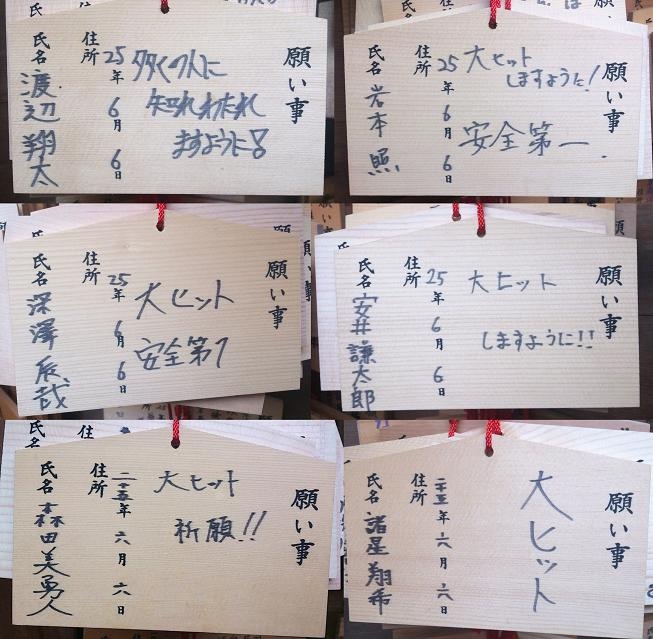 願い事
多くの人に
知れわたれ
ますように!
25年6月6日
住所
氏名 渡辺翔太
願い事
大ヒット
しますように!
安全第一
25年6月6日
住所
氏名 岩本照
願い事
大ヒット
安全第1
25年6月6日
住所
氏名 深澤辰哉
願い事
大ヒット
しますように!!
25年6月6日
住所
氏名 安井謙太郎
願い事
大ヒット
祈願!!
二十五年六月六日
住所
氏名 森田美勇人
願い事
大ヒット
二十五年六月六日
住所
氏名 諸星翔希